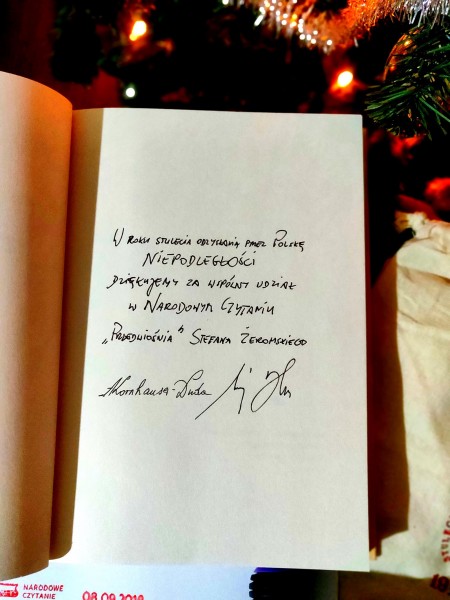 W ROKU STULECIA ODZYSKANIA PRZEZ POLSKĘ
NIEPODLEGŁOŚCI
DZIĘKUJEMY ZA WSPÓLNY UDZIAŁ
W NARODOWYM CZYTANIU
„PRZEDWIOŚNIA” STEFANA ŻEROMSKIEGO
AKornhauser-Duda
NARODOWE
CZYTANIE
08.09.2018